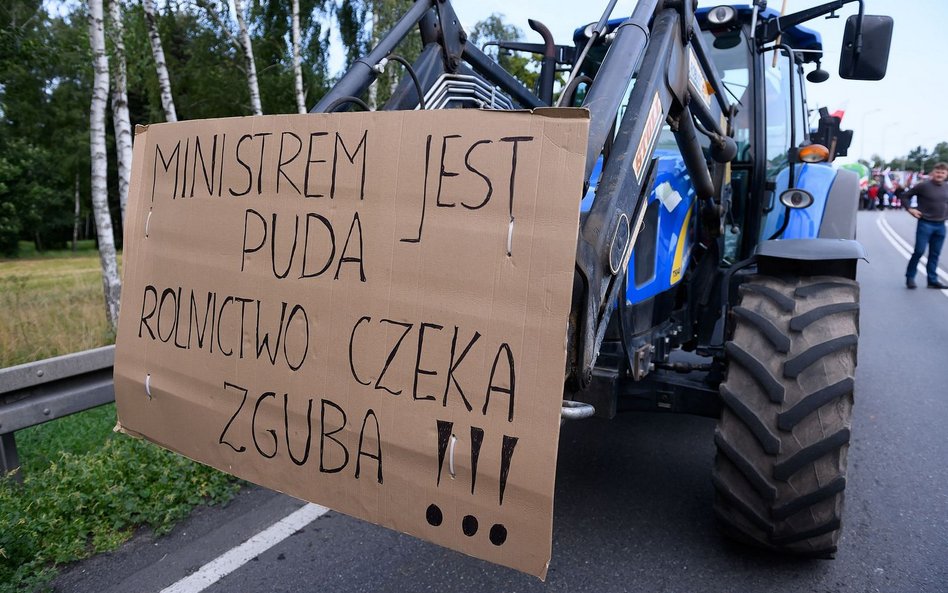 MINISTREM JEST
PUDA
ROLNICTWO CZEKA
ZGUBA !!!